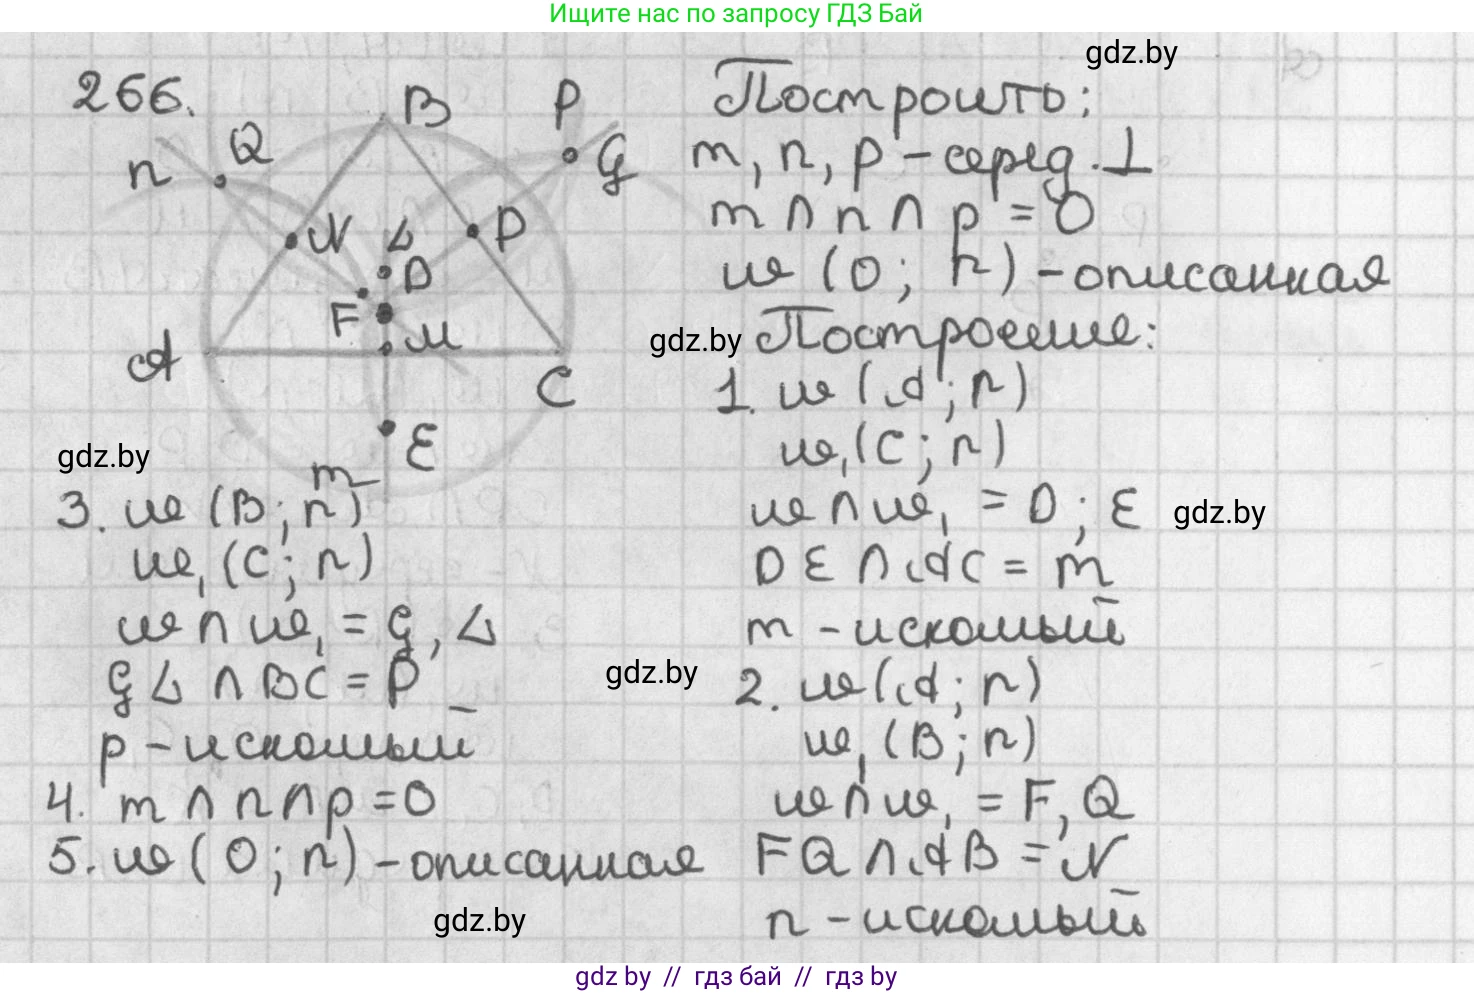 Ищите нас по запросу ГДЗ Бай
gdz.by
266.
B
P
Q
G
n
N
L
P
D
F
M
A
C
E
m
Построить:
m, n, p – серед. ⊥
m ∩ n ∩ p = O
ω (O; r) – описанная
gdz.by
Построение:
1. ω (A; r)
ω₁ (C; r)
ω ∩ ω₁ = D; E
gdz.by
DE ∩ AC = m
m – искомый
2. ω (A; r)
ω₁ (B; r)
ω ∩ ω₁ = F, Q
FQ ∩ AB = N
n – искомый
gdz.by
3. ω (B; r)
ω₁ (C; r)
ω ∩ ω₁ = G, L
GL ∩ BC = P
gdz.by
p – искомый
4. m ∩ n ∩ p = O
5. ω (O; r) – описанная
gdz.by
gdz by // гдз бай // гдз by